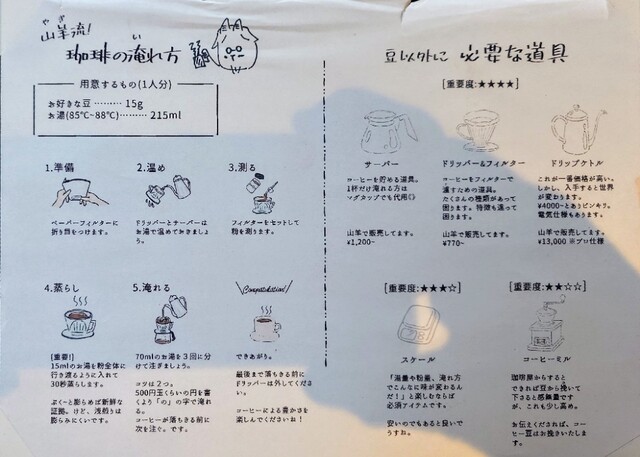 やぎ
山羊流!
い
珈琲の淹れ方
用意するもの(1人分)
お好きな豆 ……… 15g
お湯(85℃~88℃)……… 215ml
1.準備
ペーパーフィルターに
折り目をつけます。
2.温め
ドリッパーとサーバーは
お湯で温めておきましょ
う。
3.測る
フィルターをセットして
粉を測ります。
4.蒸らし
[重要!]
15mlのお湯を粉全体に
行き渡るように入れて
30秒蒸らします。
ぷく~と膨らめば新鮮な
証拠。けど、浅煎りは
膨らみにくいです。
5.淹れる
70mlのお湯を3回に分
けて注ぎましょう。
コツは2つ。
500円玉くらいの円を書
くよう「の」の字で淹れ
る。
コーヒーが落ちきる前に
次を注ぐ。です。
Congratulation!
できあがり。
最後まで落ちきる前に
ドリッパーは外してくださ
い。
コーヒーによる豊かさを
楽しんでくださいね!
豆以外に 必要な道具
[重要度:★★★★]
サーバー
コーヒーを貯める道具。
1杯だけ淹れる方は
マグカップでも代用◎
山羊で販売してます。
¥1,200~
ドリッパー&フィルター
コーヒーをフィルターで
濾すための道具。
たくさんの種類があって
困ります。特徴も違って
困ります。
山羊で販売してます。
¥770~
ドリップケトル
これが一番価格が高い。
しかし、入手すると世界
が変わります。
¥4000~とありピンキリ。
電気仕様もあります。
山羊で販売してます。
¥13,000 ※プロ仕様
[重要度:★★★☆]
スケール
「湯量や粉量、淹れ方
でこんなに味が変わるん
だ!」と楽しむならば
必須アイテムです。
安いのでもあると良いで
うすね。
[重要度:★★☆☆]
コーヒーミル
珈琲房からすると
できれば豆から挽いて
下さると感無量です
が、これも少し高め。
お伝えくだされば、コー
ヒー豆はお挽きいたしま
す。